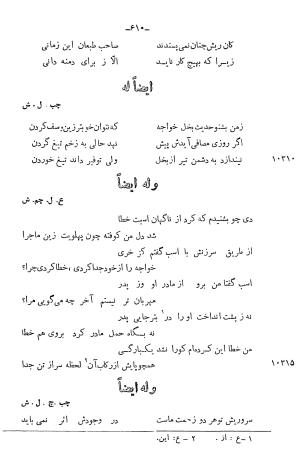 -۶۱۰-
کان ریش چنان نمی‌پسندند صاحب طبعان این زمانی
زیرا که بهیچ کار ناید الا ز برای دمنه دانی
ایضاً له
چپ . ل . ش
زمن بشنو حدیث بخل خواجه که نتوان خوبتر زین وصف کردن
اگر روزی مصافی آیدش پیش نهد حالی به زخم تیغ گردن
۱۰۳۱۰ نیندازد به دشمن تیر از بخل ولی توفیر داند تیغ خوردن
وله ایضاً
ع . ل . چم . ش
دی چو بشنیدم که کرد از ناگهان اسبت خطا
شد دل من کوفته چون پهلویت زین ماجرا
از طریق سرزنش با اسب گفتم کز خری
خواجه را از خود جدا کردی، خطا کردی چرا؟
اسب گفتا من بر و از مادر او وز پدر
مهربان تر نیستم آخر چه می‌گویی مرا؟
نه ز پشت انداخت او را در۱ بتر جایی پدر
نه بسگاه حمل مادر کرد بروی هم خطا
من خطا این کرده‌ام کورا نشد یکبارگی
۱۰۳۱۵ همچو پایش از رکاب آن۲ لحظه سر از تن جدا
وله ایضاً
چپ . چ . ل . ش
سرو ریش تو هر دو زحمت ماست در وجودش اثر نمی باید
۱ - ع : از . ۲ - ع : این.